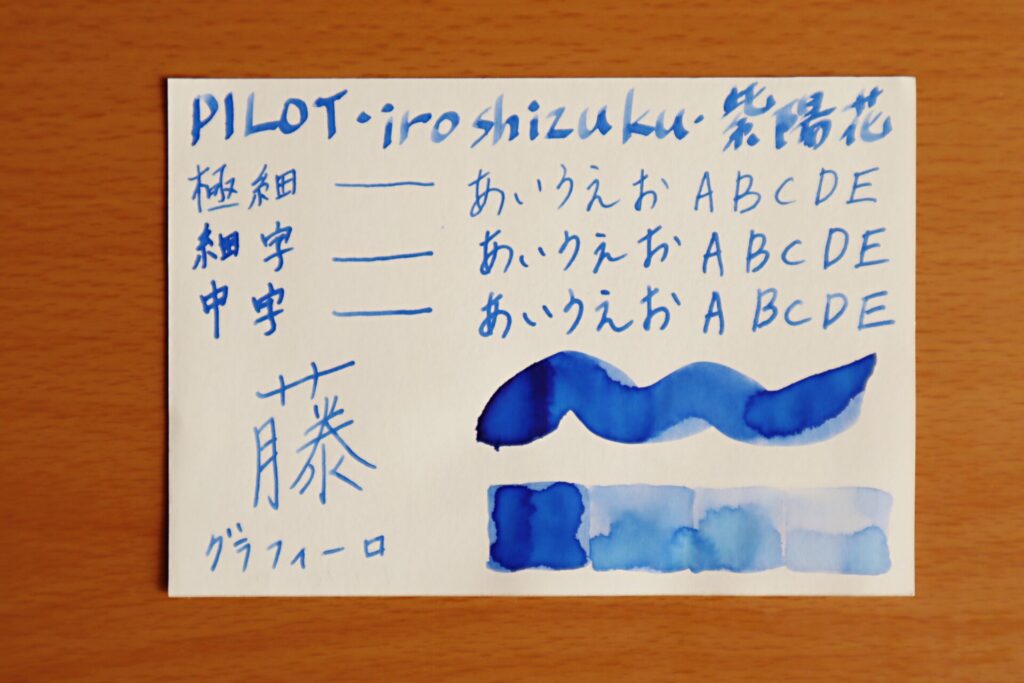 PILOT・iroshizuku・紫陽花
極細 あいうえお ABCDE
細字 あいうえお ABCDE
中字 あいうえお ABCDE
藤
グラフィーロ